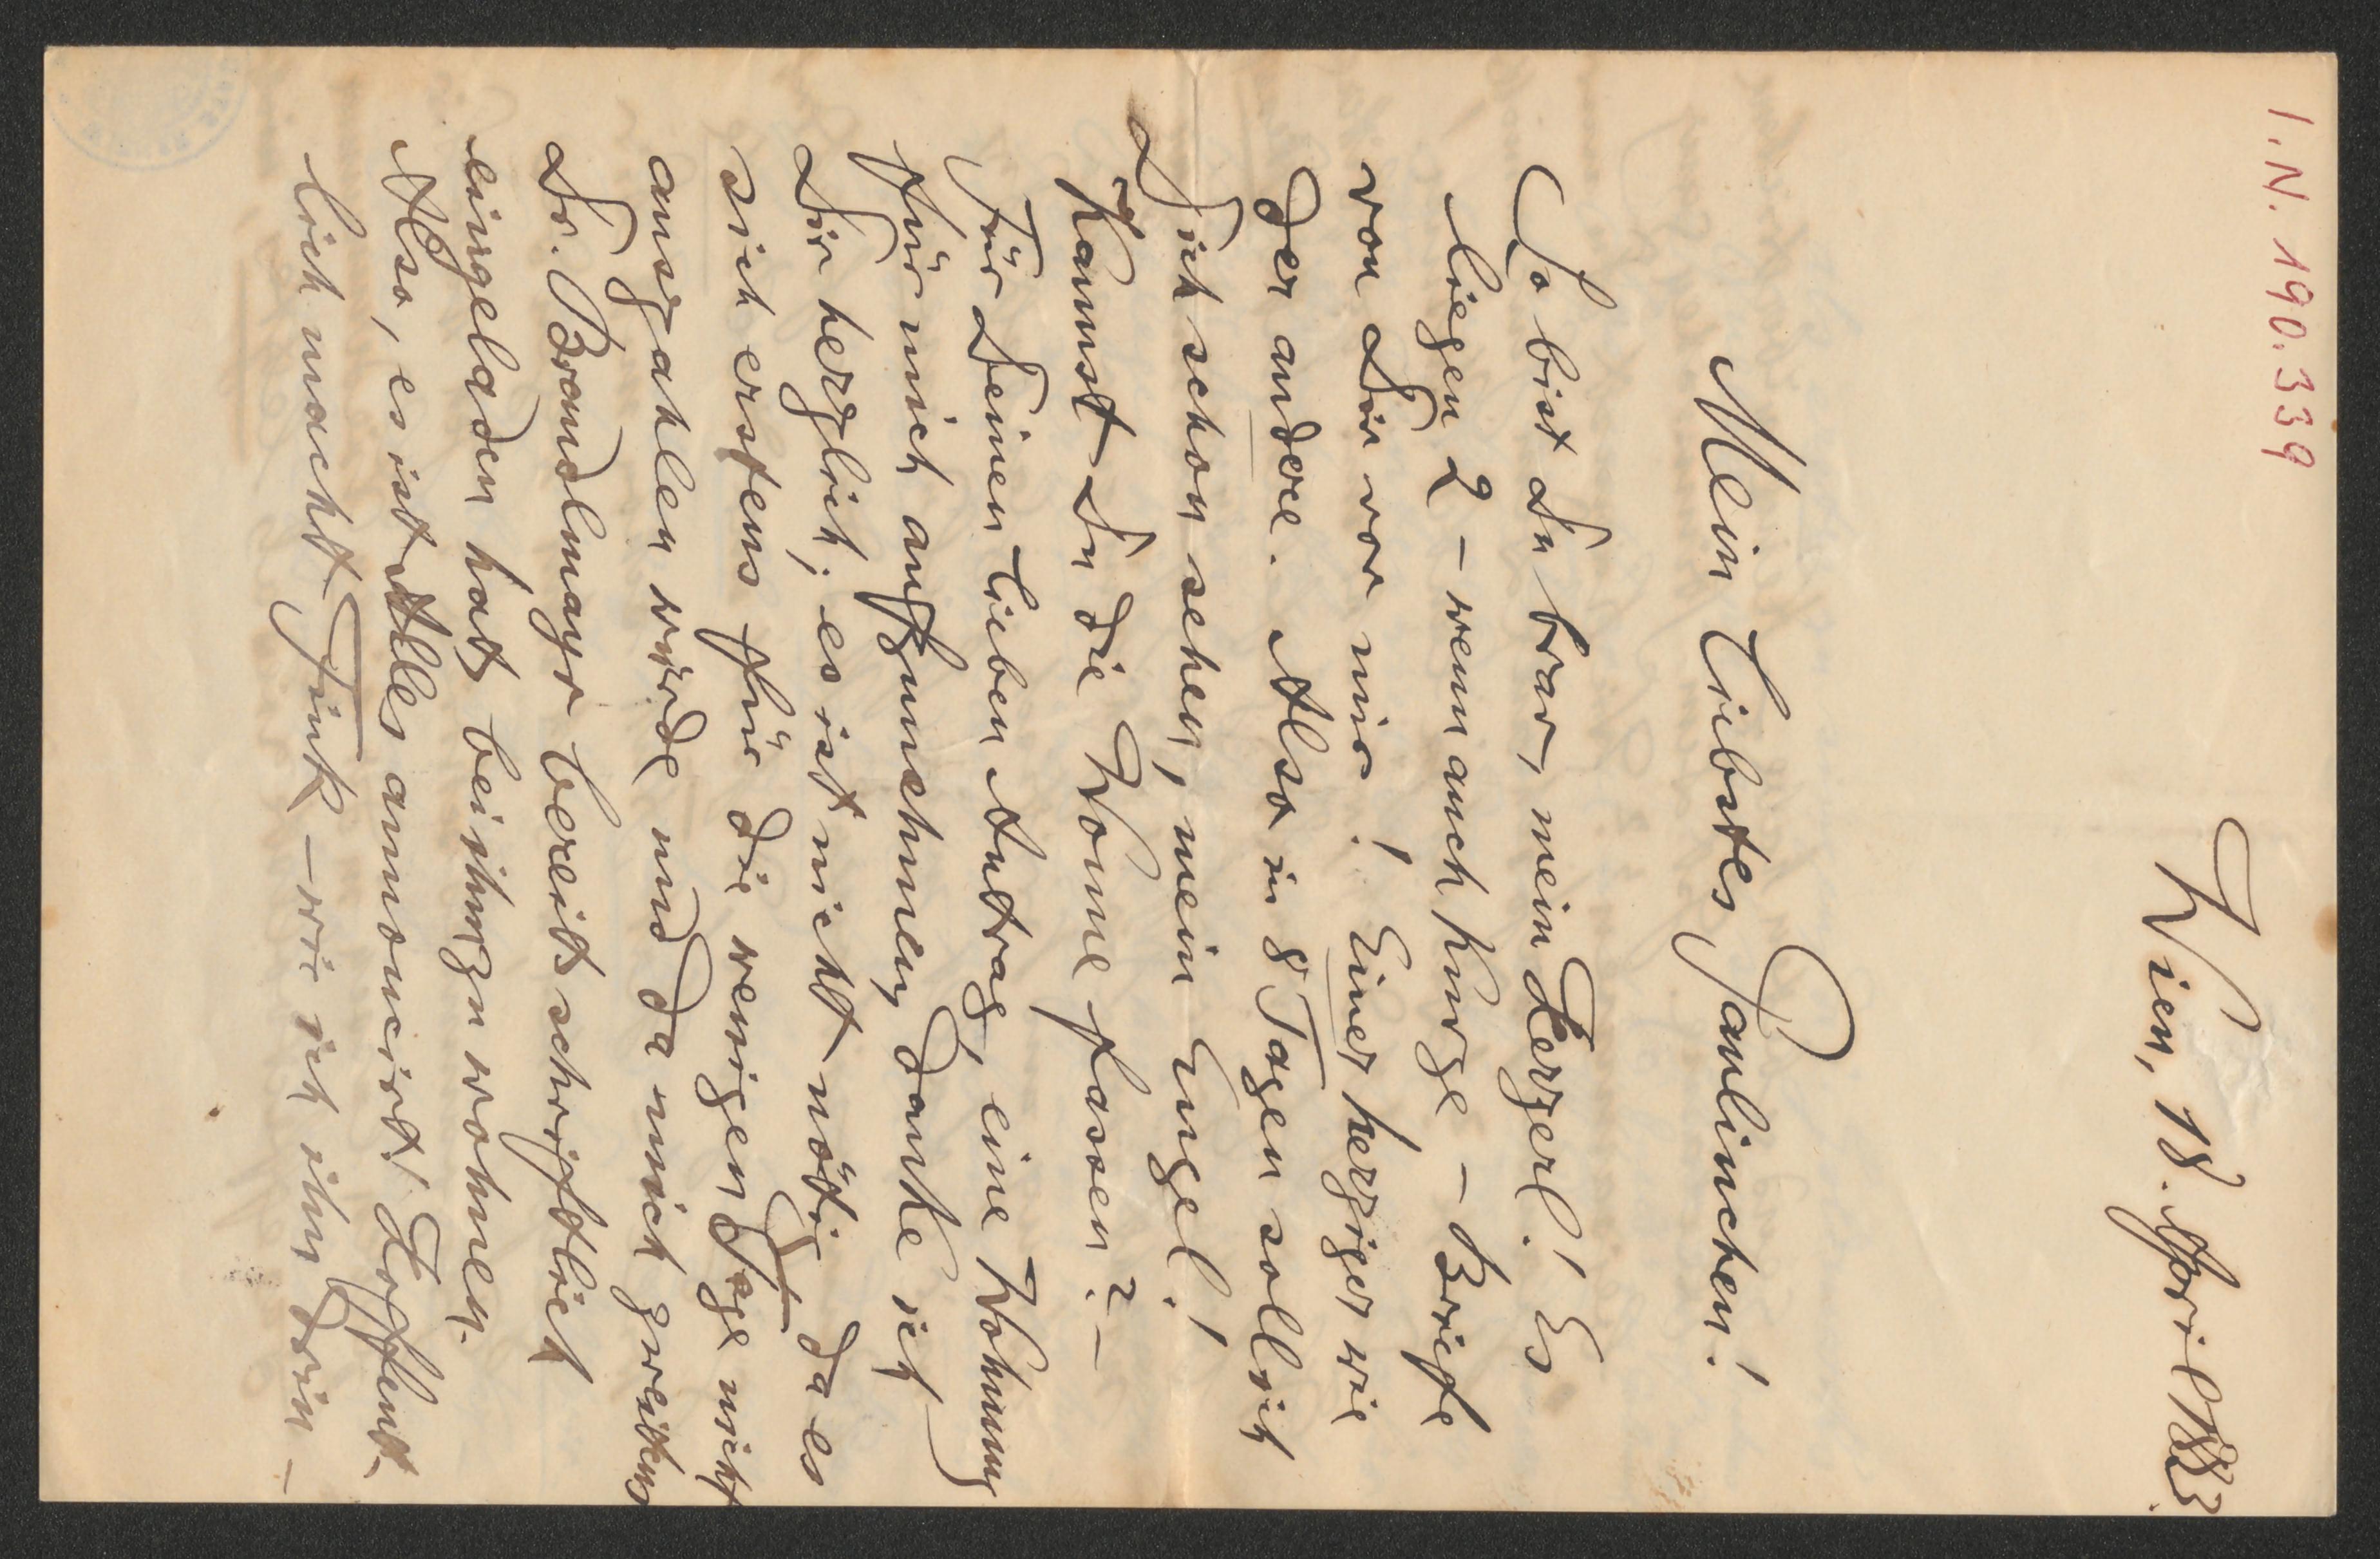 I.N. 190.339
Wien, 18. April 1883.
Mein liebstes Paulinchen!
So bist Du brav, mein Herzerl! Es
liegen 2 – wenn auch kurze – Briefe
von Dir vor mir! Einer herziger wie
der andere. Also in 8 Tagen soll ich
Dich schon sehen, mein Engel!
Kannst Du die Wonne fassen? –
Für Deinen lieben Antrag, eine Wohnung
für mich aufzunehmen, danke ich
Dir herzlich; es ist nicht nötig, da es
sich erstens für die wenigen Tage nicht
auszahlen würde und da mich zweitens
Dr. Brandlmayr bereits schriftlich
eingeladen hat, bei ihm zu wohnen.
Also, es ist Alles annoncirt! Hoffent-
lich macht Fink – wie ich ihm drin –